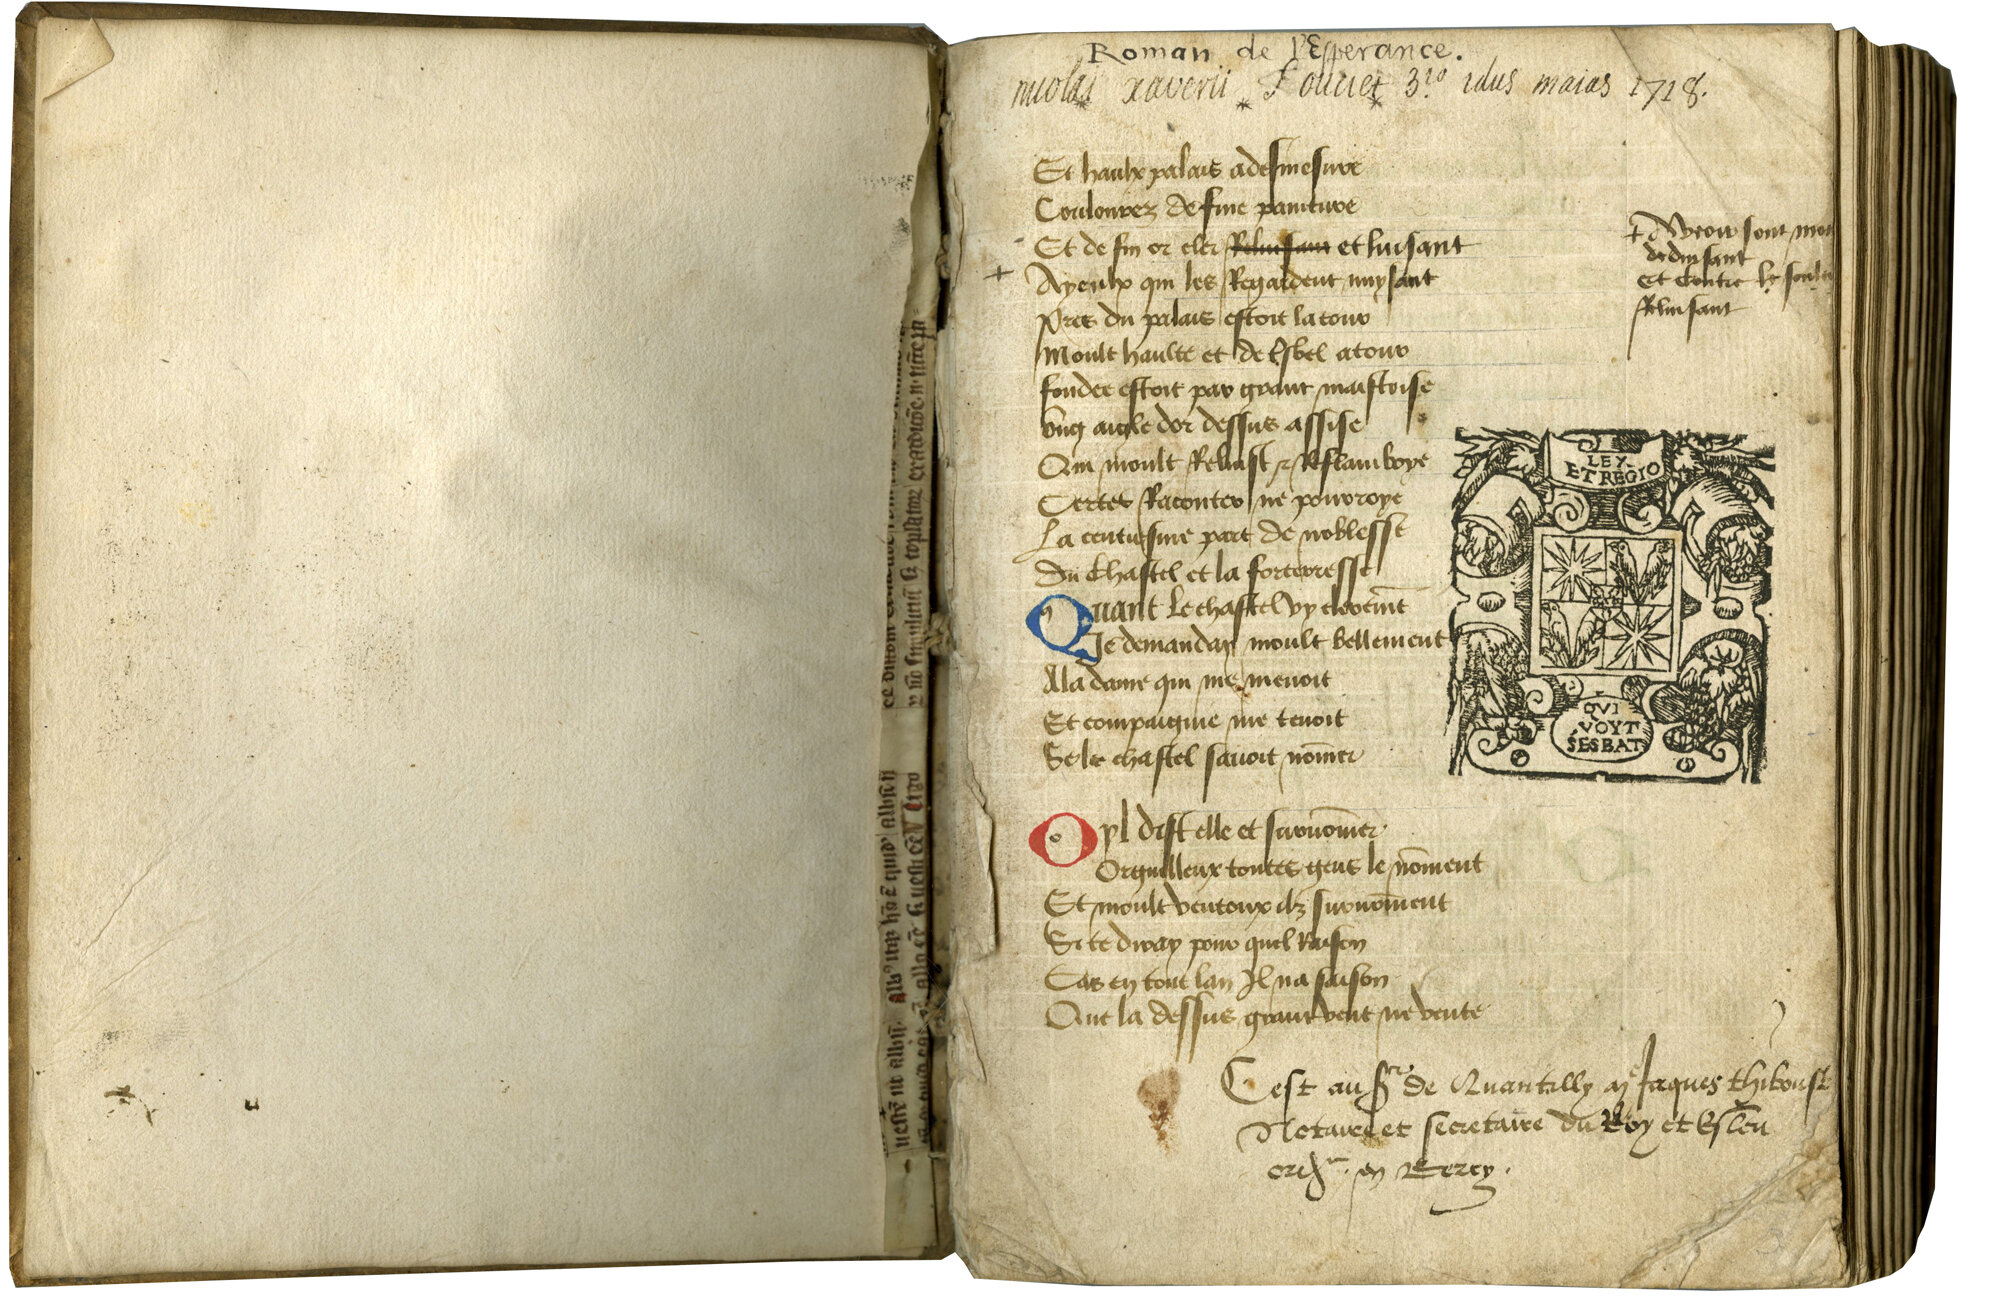 Roman de l'Esperance.
nicolai xaverii Foucret 3.io idus maias 1718.
Et haulx palais a desmesure
Coulourez de fine painture
Et de fin or cler Reluisant et luisant
A yeulx qui les Regardent nuysant
Pres du palais estoit la tour
Moult haulte et de bel atour
fondee estoit par grant maistrise
Ung aigle dor dessus assise
Qui moult Reluist et Reflamboye
Certes Raconter ne pourroye
La centiesme part de noblesse
Du chastel et la forteresse
Quant le chastel vy
Je demanday moult bellement
A la dame qui me menoit
Et compaignie me tenoit
Se le chastel savoit nom̄er
Oyl dist elle et surnom̄er
Orguilleux toutes gens le nom̄ent
Et moult venteux ilz surnom̄ent
Si te diray pour quel Raison
Car en tout lan Il na saison
Que la dessus grant vent ne vente
+
+ sont
deduisant
Et contre le
Reluisant
LEX
ET REGIO
QVI
VOYT
SESBAT
Cest au Sr de Quantilly me Jaques thiboust
Notaire et secretaire du Roy et Esleu
en Berry.